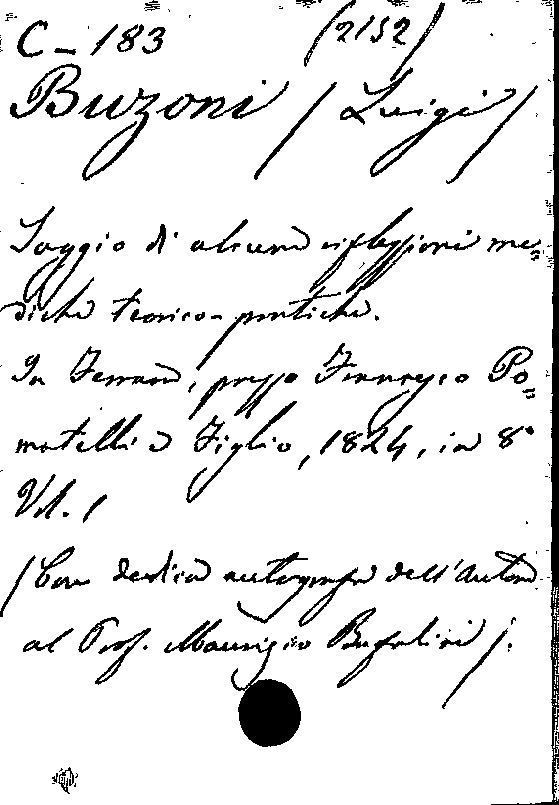 C - 183 (2152)
Buzoni (Luigi)
Saggio di alcune riflessioni me=
diche teorico-pratiche.
In Ferrara, presso Francesco Po=
matelli e Figlio, 1824, in 8°
Vol. 1
(Con dedica autografa dell'Autore
al Prof. Maurizio Bufalini).